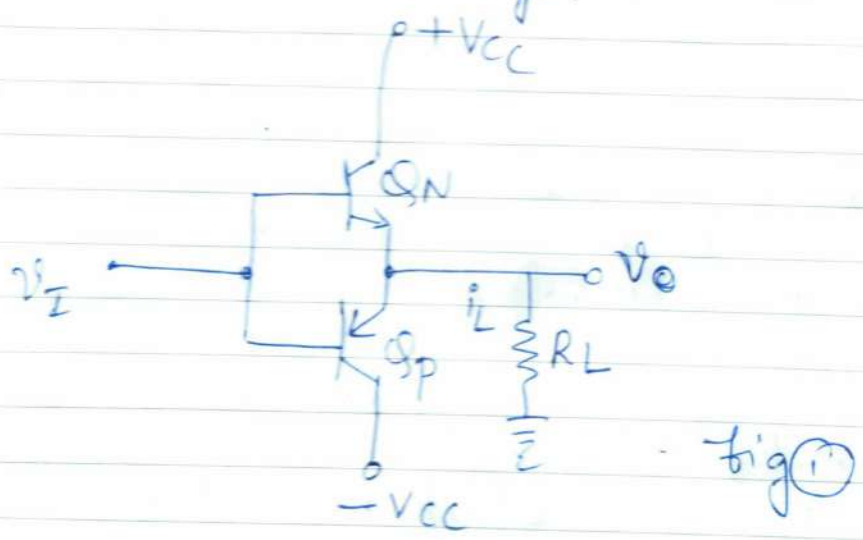 +VCC
QN
vI
vo
iL
RL
QP
-VCC
fig 1